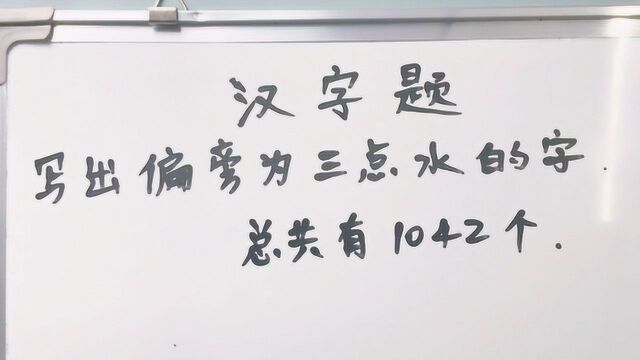 汉字题
写出偏旁为三点水的字.
总共有1042个.